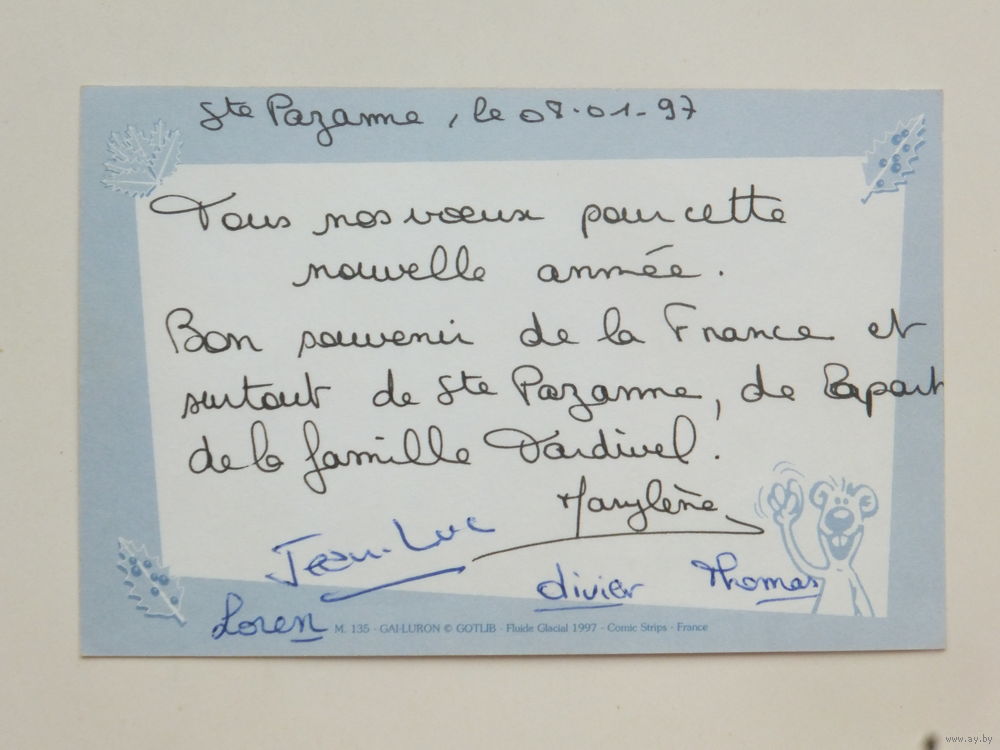 Ste Pazanne, le 08.01-97
Tous nos voeux pour cette
nouvelle année.
Bon souvenir de la France et
surtout de Ste Pazanne, de la part
de la famille Tardivel.
Marylène
Jean-Luc
Olivier Thomas
Loren
M. 135 - GAI-LURON © GOTLIB - Fluide Glacial 1997 - Comic Strips - France
www.ay.by